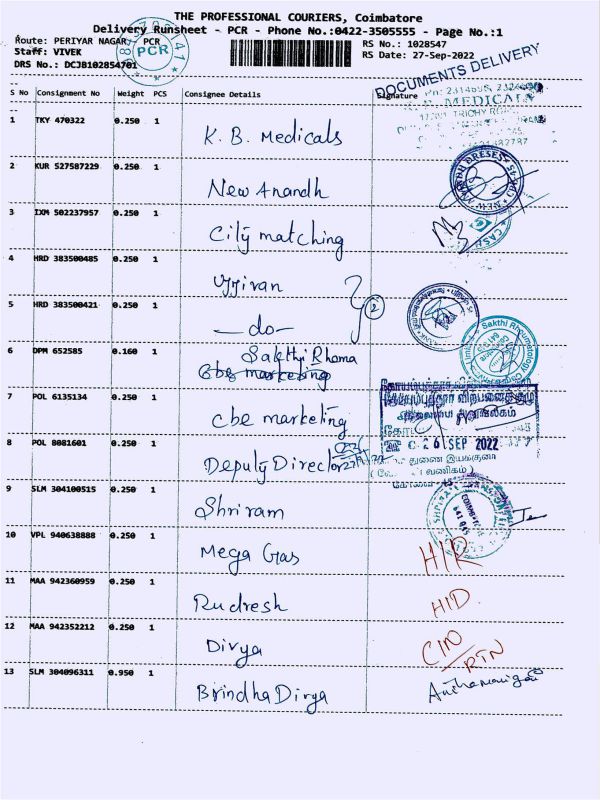 THE PROFESSIONAL COURIERS, Coimbatore
Delivery Runsheet - PCR - Phone No.:0422-3505555 - Page No.:1
Route: PERIYAR NAGAR, PCR
Staff: VIVEK
DRS No.: DCJB102854701
PCR
RS No.: 1028547
RS Date: 27-Sep-2022
DOCUMENTS DELIVERY
S No Consignment No Weight PCS Consignee Details Signature
1 TKY 470322 0.250 1 K. B. Medicals
MEDICALS
TRICHY
2 KUR 527587229 0.250 1 New Anandh
3 IXM 502237957 0.250 1 City matching
CASH
4 HRD 383500485 0.250 1 Ujjivan
2
5 HRD 383500421 0.250 1 —do—
6 DPM 652585 0.160 1 Sakthi Rhema
cbe marketing
Sakthi Rheumatology
7 POL 6135134 0.250 1 cbe marketing
கோயம்புத்தூர் விற்பனைக்குழு
26 SEP 2022
8 POL 8081601 0.250 1 Deputy Director
துணை இயக்குனர்
வணிகம்
9 SLM 304100515 0.250 1 Shriram
10 VPL 940638888 0.250 1 Mega Gas H/R
11 MAA 942360959 0.250 1 Rudresh HID
12 MAA 942352212 0.250 1 Divya
RTN
13 SLM 304096311 0.950 1 Brindha Divya